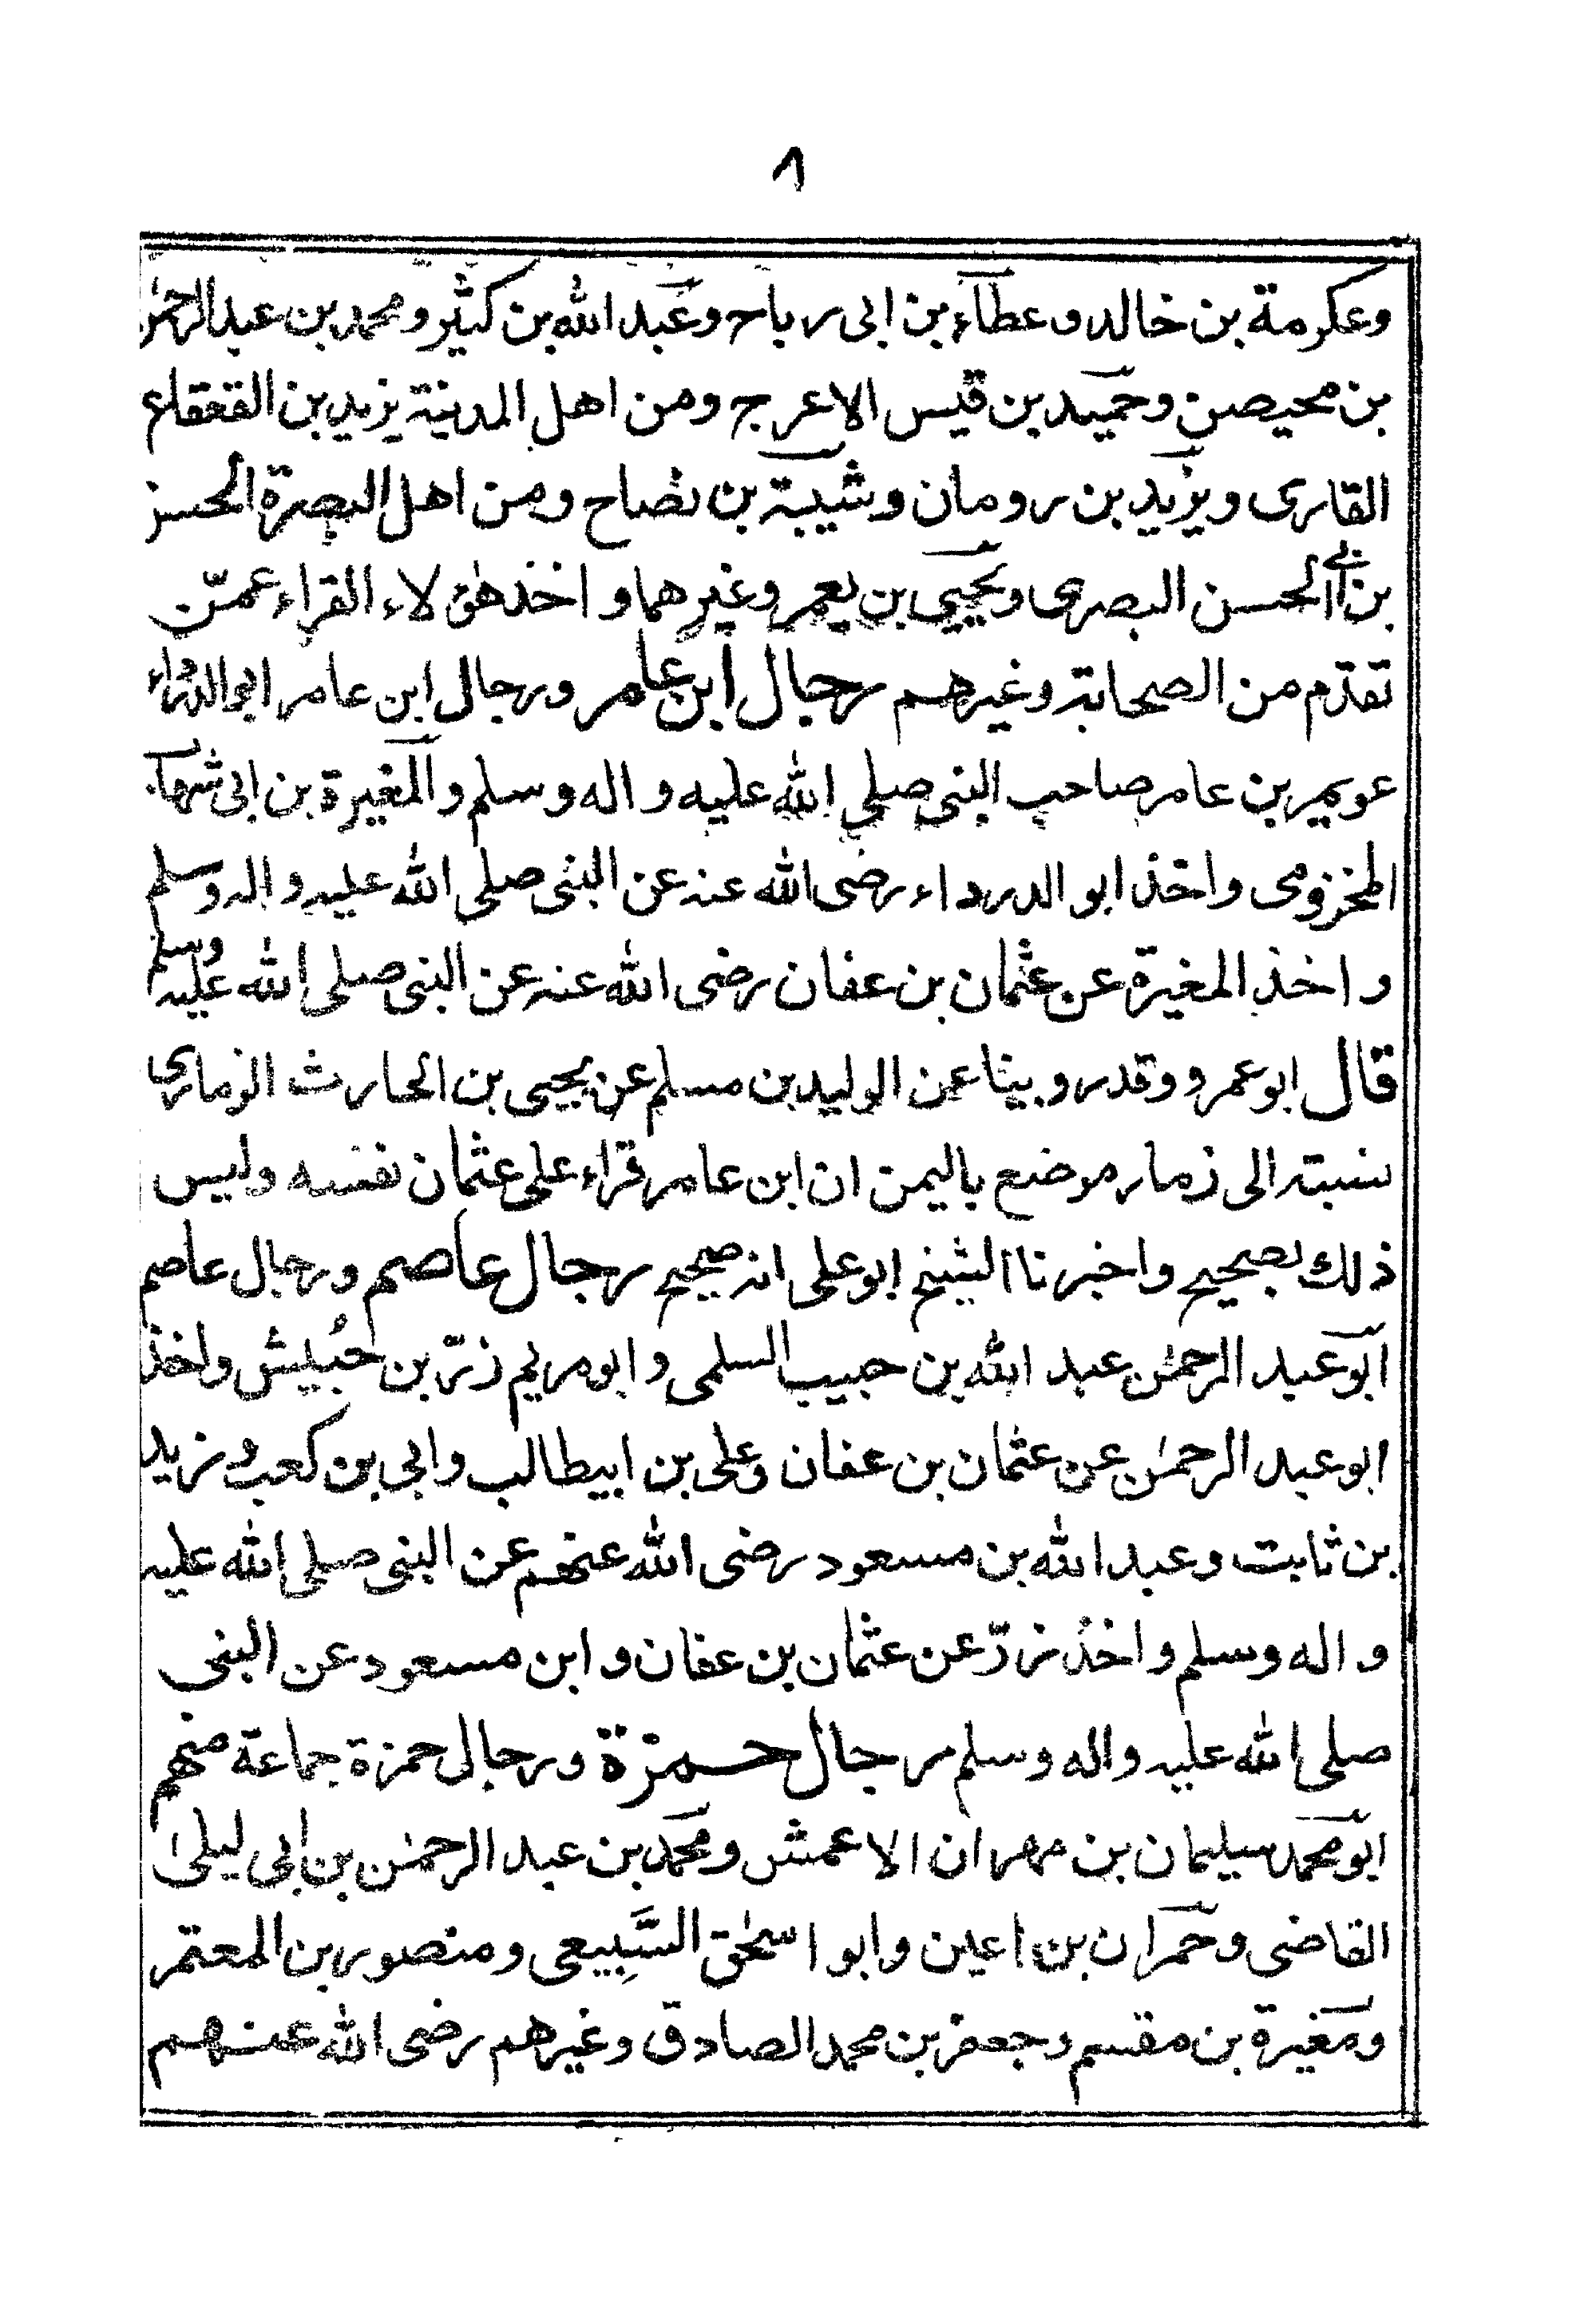 ٨
وعكرمة بن خالد وعطاء بن ابى رباح وعبد الله بن كثير ومحمد بن عبد الرحمن
بن محيصن وحميد بن قيس الاعرج ومن اهل المدينة يزيد بن القعقاع
القارى ويزيد بن رومان وشيبة بن نصاح ومن اهل البصرة الحسن
بن ابى الحسن البصرى ويحيى بن يعمر وغيرهما واخذ هٰؤلاء القراء عمّن
تقدّم من الصحابة وغيرهم رجال ابن عامر ورجال ابن عامر ابى الدرداء
عويمر بن عامر صاحب النبى صلى الله عليه واله وسلم والمغيرة بن ابى شهاب
المخزومى واخذ ابو الدرداء رضى الله عنه عن النبى صلى الله عليه واله وسلم
واخذ المغيرة عن عثمان بن عفان رضى الله عنه عن النبى صلى الله عليه وسلم
قال ابو عمرو وقد روينا عن الوليد بن مسلم عن يحيى بن الحارث الزمارى
نسبته الى زمار موضع باليمن ان ابن عامر قراء على عثمان نفسه وليس
ذلك بصحيح واخبرنا الشيخ ابو على انه صحيح رجال عاصم ورجال عاصم
ابو عبد الرحمٰن عبد الله بن حبيب السلمى وابو مريم زرّ بن حُبيش واخذ
ابو عبد الرحمٰن عن عثمان بن عفان وعلى بن ابيطالب وابى بن كعب وزيد
بن ثابت وعبد الله بن مسعود رضى الله عنهم عن النبى صلى الله عليه
واله وسلم واخذ زرّ عن عثمان بن عفان وابن مسعود عن النبى
صلى الله عليه واله وسلم رجال حمزة ورجال حمزة جماعة منهم
ابو محمد سيليمان بن مهران الاعمش ومحمد بن عبد الرحمٰن بن ابى ليلىٰ
القاضى وحمران بن اعين وابو اسحٰق السَّبِيعى ومنصور بن المعتمر
ومغيرة بن مقسم وجعفر بن محمد الصادق وغيرهم رضى الله عنهم